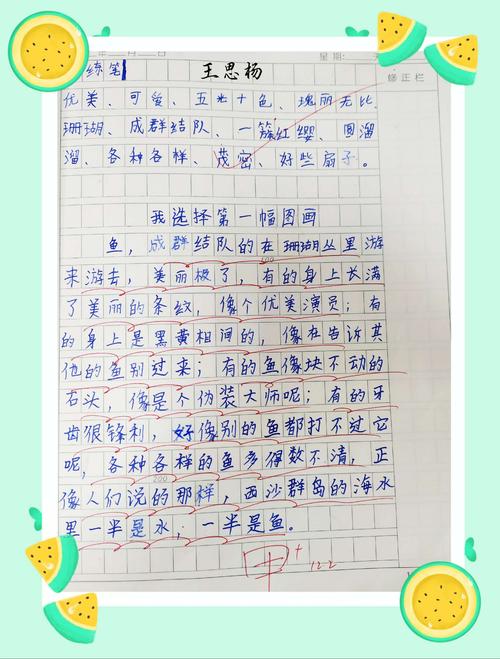 年 月 日 星期:
练笔 王思杨
修正栏
优美、可爱、五光十色、瑰丽无比、
珊瑚、成群结队、一簇红缨、圆溜
溜、各种各样、茂密、好些扇子。
我选择第一幅图画
鱼,成群结队的在珊瑚丛里游
来游去,美丽极了,有的身上长满
了美丽的条纹,像个优美演员;有
的身上是黑黄相间的,像在告诉其
他的鱼别过来;有的鱼像块不动的
石头,像是个伪装大师呢;有的牙
齿很锋利,好像别的鱼都打不过它
呢,各种各样的鱼多得数不清,正
像人们说的那样,西沙群岛的海水
里一半是水,一半是鱼。
200
中+
122